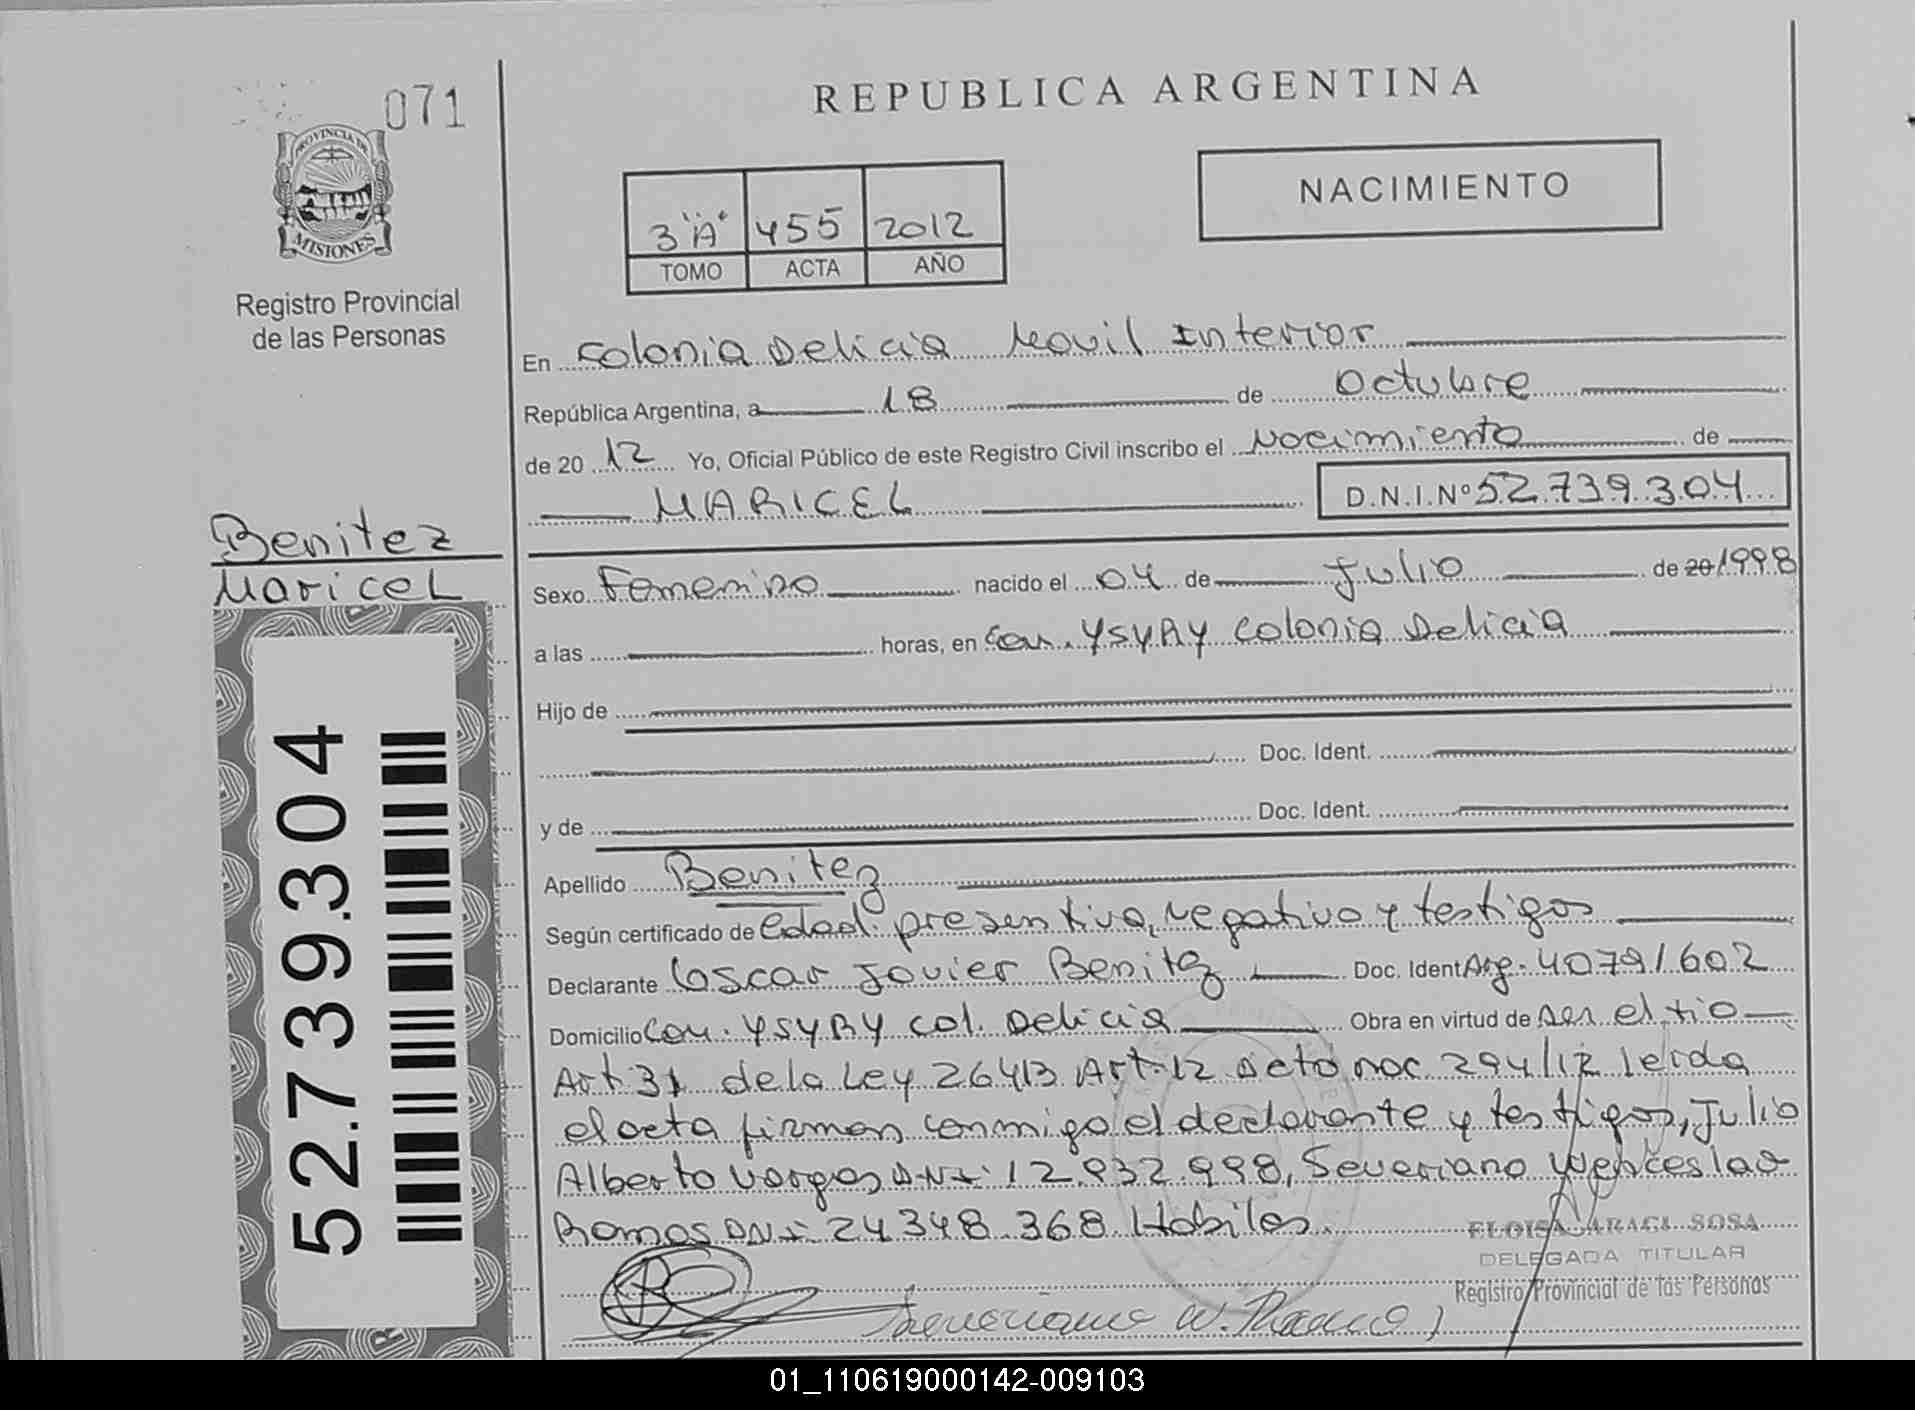 071
PROVINCIA DE
MISIONES
Registro Provincial
de las Personas
REPUBLICA ARGENTINA
NACIMIENTO
3 "A" 455 2012
TOMO ACTA AÑO
En Colonia Delicia Movil Interior
República Argentina, a 18 de Octubre
de 20 12 Yo, Oficial Público de este Registro Civil inscribo el Nacimiento de
MARICEL D.N.I.Nº 52.739.304
Benitez
Maricel
Sexo Femenino nacido el 04 de Julio de 20 1998
a las horas, en Com. YSYRY Colonia Delicia
Hijo de
Doc. Ident.
y de Doc. Ident.
Apellido Benitez
Según certificado de edad presuntiva, negativo y testigos
Declarante Oscar Javier Benitez Doc. Ident Arg. 40791602
Domicilio Com. YSYRY Col. Delicia Obra en virtud de ser el tio
Art 31 de la Ley 26413 Art. 12 Dcto nac 294/12 leida
el acta firman conmigo el declarante y testigos, Julio
Alberto Vargas DNI 12.932.998, Severiano Wenceslao
Ramos DNI 24348.368 Habiles.
ELOISA ARACI SOSA
DELEGADA TITULAR
Registro Provincial de las Personas
Severiano W. Ramos
52.739.304
01_110619000142-009103